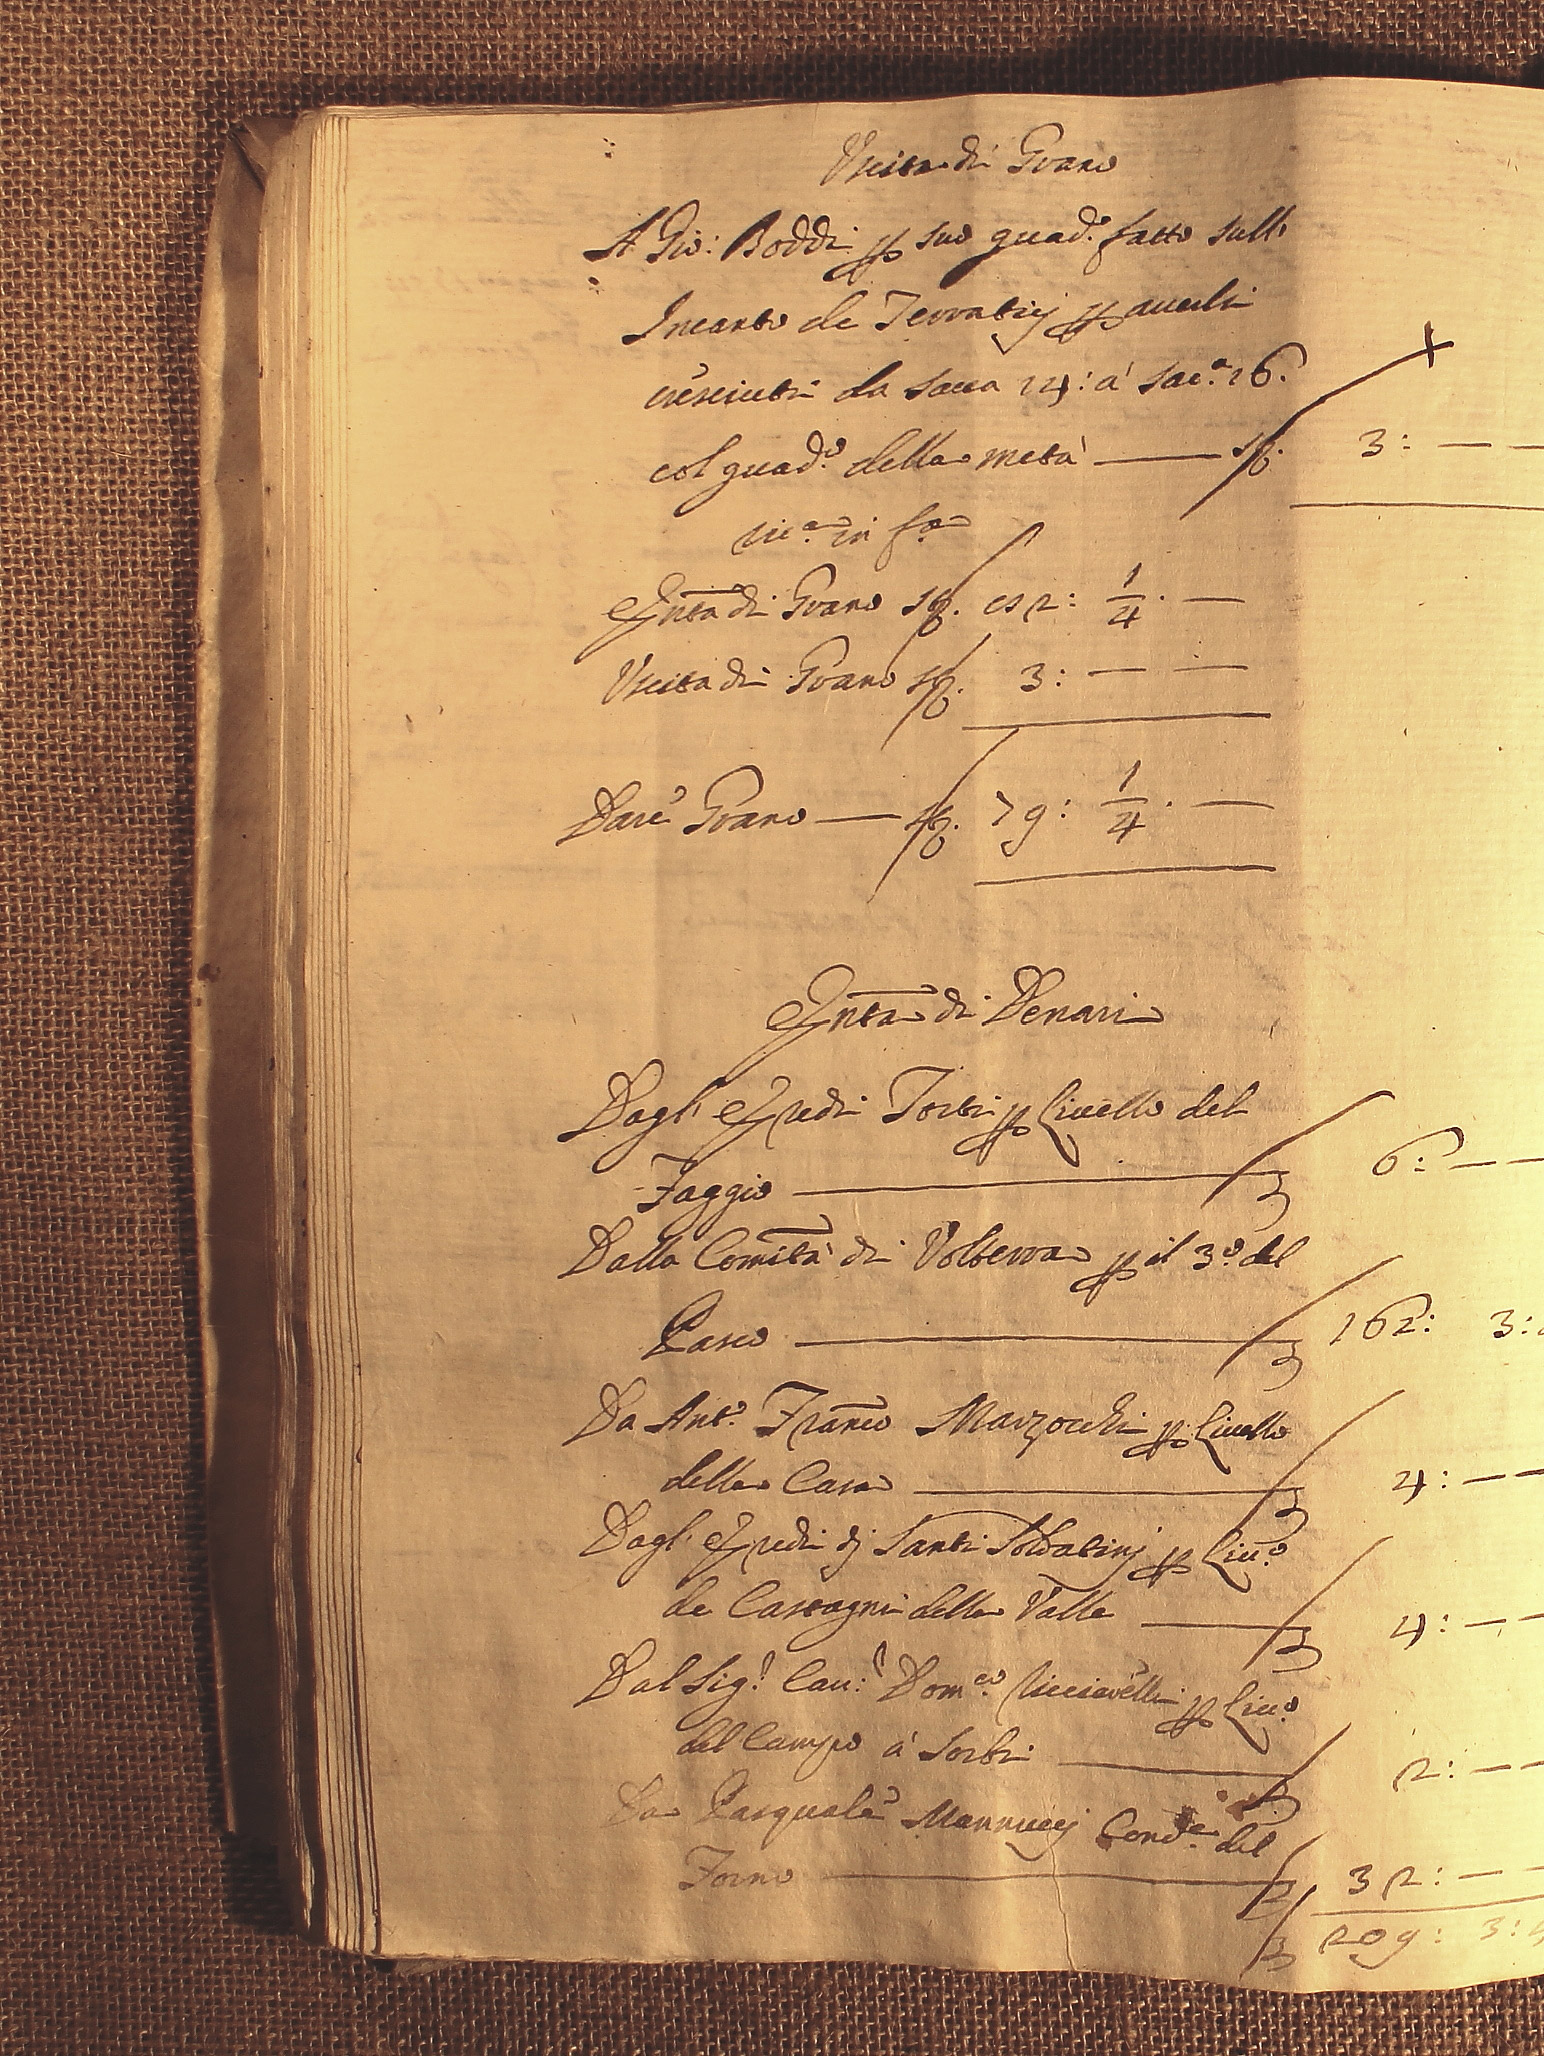 Uscita di Grano
A Gio: Boddi p suo guad.o fatto sull'
Incanto de Terratici p averli
cresciuti da sacca 24: à sac.a 26.
col guad.o della metà — 3: — —
in f.a
Entta di Grano 82: 1/4. —
Uscita di Grano 3: — —
Dare Grano — 79: 1/4. —
Entta di Denari
Dagl' Eredi Torri p Livello del
Faggio — 6: — —
Dalla Comità di Volterra p il 3.o del
Pasco — 162: 3:
Da Ant.o Franco Marzocchi p Livello
della Casa — 4: — —
Dagl' Eredi di Santi Soldatini p Liv.o
de Castagni della Valle — 4: — —
Dal Sig.r Cav.r Dom.co Ricciarelli p Liv.o
del Campo à Sorbi — 2: — —
Da Pasquale Mannucci Cond.e del
Forno — 32: — —
209: 3: